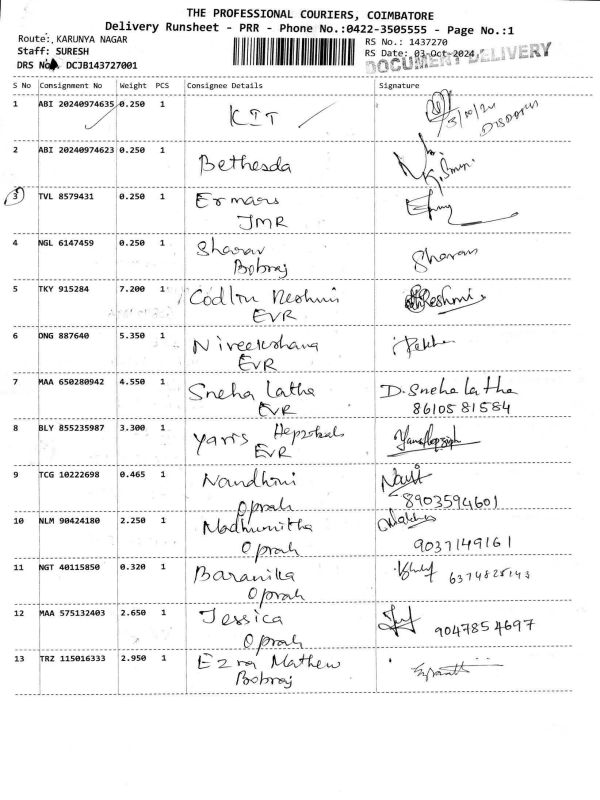 THE PROFESSIONAL COURIERS, COIMBATORE
Delivery Runsheet - PRR - Phone No.:0422-3505555 - Page No.:1
Route: KARUNYA NAGAR
RS No.: 1437270
Staff: SURESH
RS Date: 03-Oct-2024
DOCUMENT DELIVERY
DRS No. DCJB143727001
S No Consignment No Weight PCS Consignee Details Signature
1 ABI 20240974635 0.250 1 KIT
3/10/24
2 ABI 20240974623 0.250 1 Bethesda
3 TVL 8579431 0.250 1 Ermars
JMR
4 NGL 6147459 0.250 1 Sharav Sharan
Bobraj
5 TKY 915284 7.200 1 Codlin Reshmi Reshmi
EVR
6 ONG 887640 5.350 1 Niveekshana
EVR
7 MAA 650280942 4.550 1 Sneha Latha D. Sneha latha
EVR 8610581584
8 BLY 855235987 3.300 1 Yaris
EVR
9 TCG 10222698 0.465 1 Nandhini
Oprah 8903594601
10 NLM 90424180 2.250 1 Madhumitha
Oprah 9037149161
11 NGT 40115850 0.320 1 Baranika
Oprah
12 MAA 575132403 2.650 1 Jessica
Oprah 9047854697
13 TRZ 115016333 2.950 1 Ezra Mathew
Bobraj